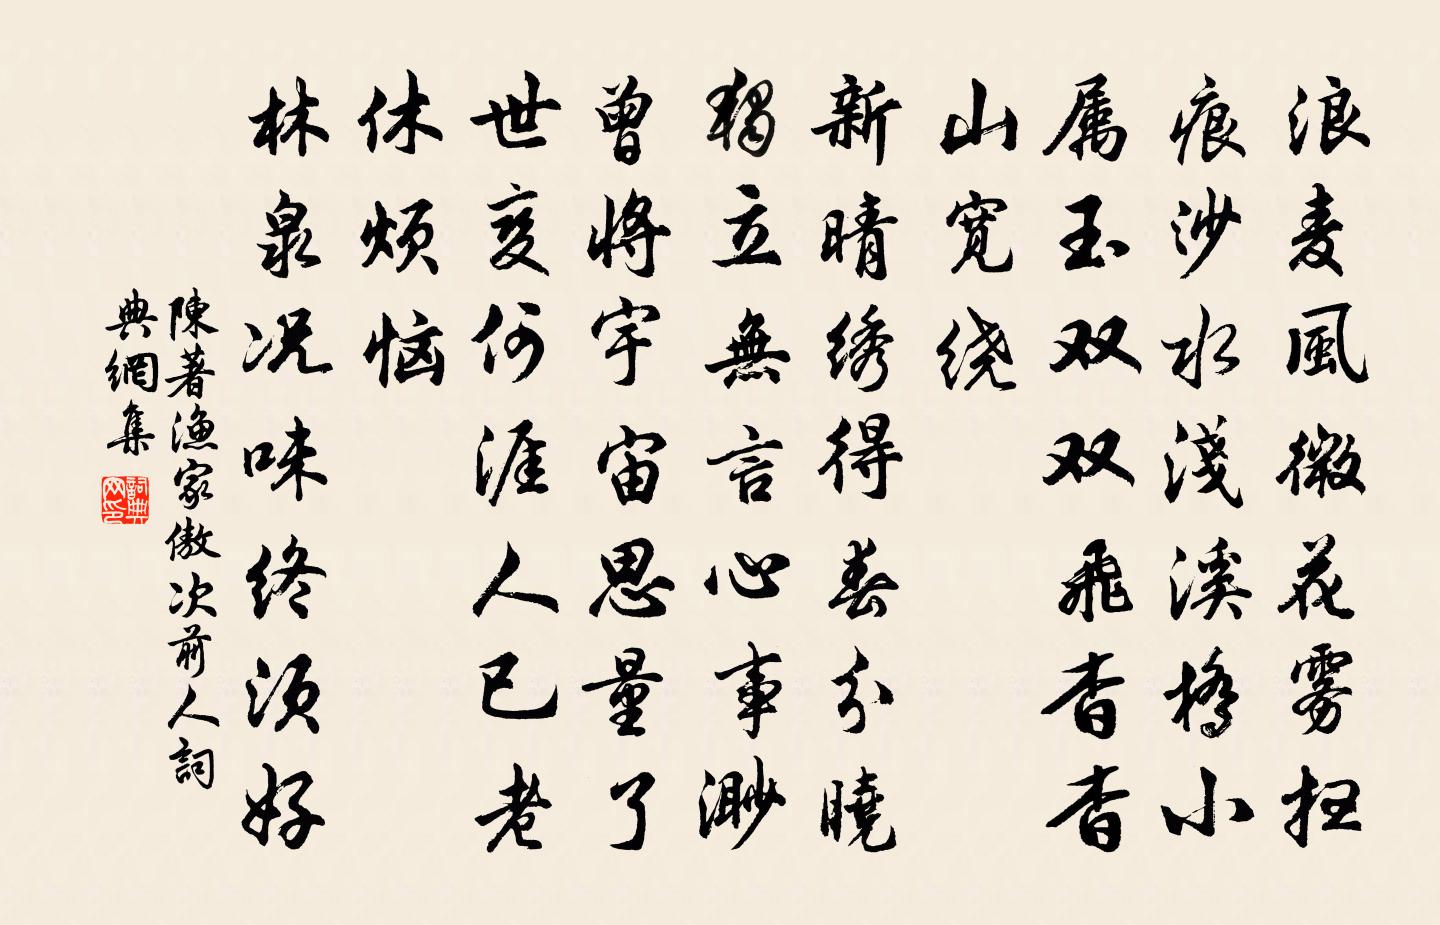 浪麦風微花雾扫
痕沙水淺溪橋小
属玉双双飛杳杳
山宽绕
新晴绣得春分曉
獨立無言心事渺
曾將宇宙思量了
世变何涯人已老
休烦恼
林泉况味终须好
陳著漁家傲次前人詞
典網集
詞典网印